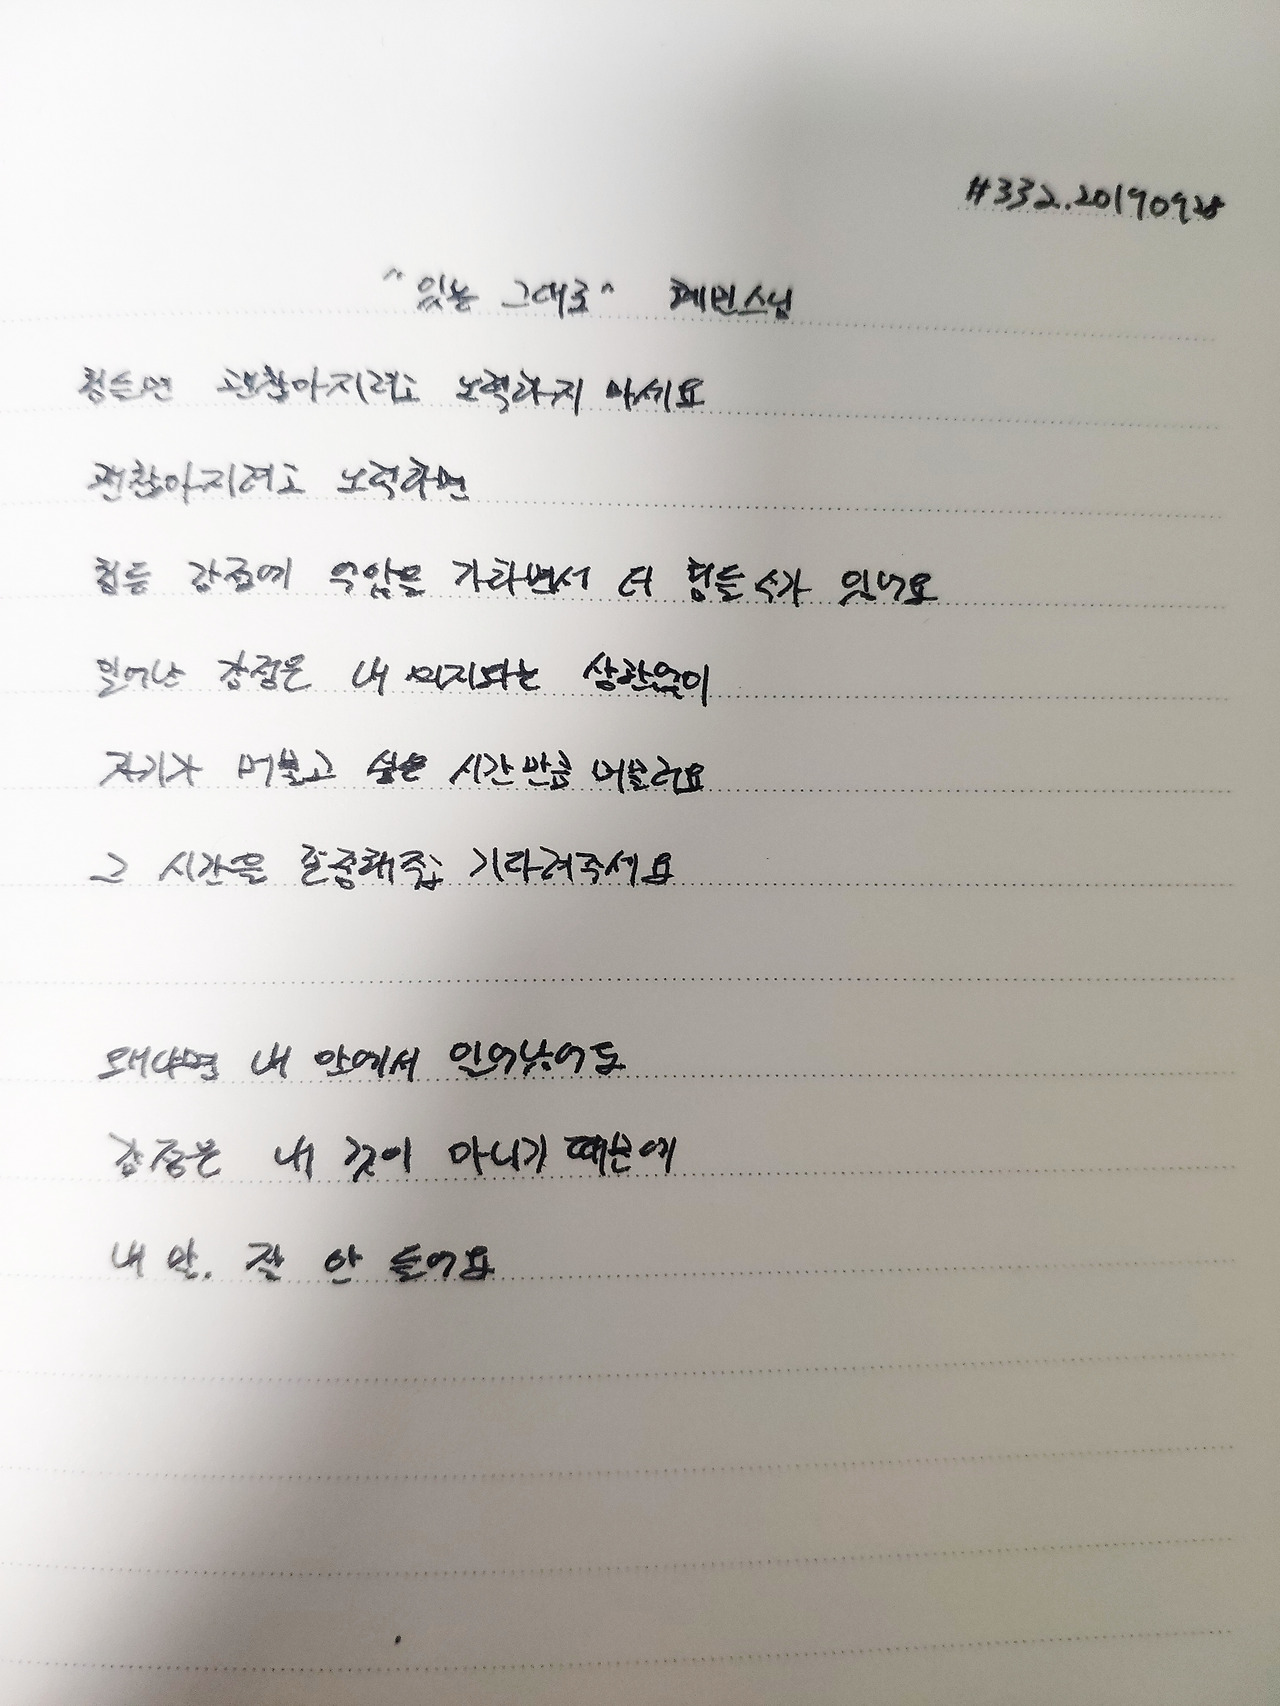 #332.20190928
"있는 그대로" 혜민스님
힘들면 괜찮아지려고 노력하지 마세요
괜찮아지려고 노력하면
힘든 감정에 억압을 가하면서 더 힘들 수가 있어요
일어난 감정은 내 의지와는 상관없이
자기가 머물고 싶은 시간만큼 머물러요
그 시간을 존중해주고 기다려주세요
왜냐면 내 안에서 일어났어도
감정은 내 것이 아니기 때문에
내 말. 잘 안 들어요